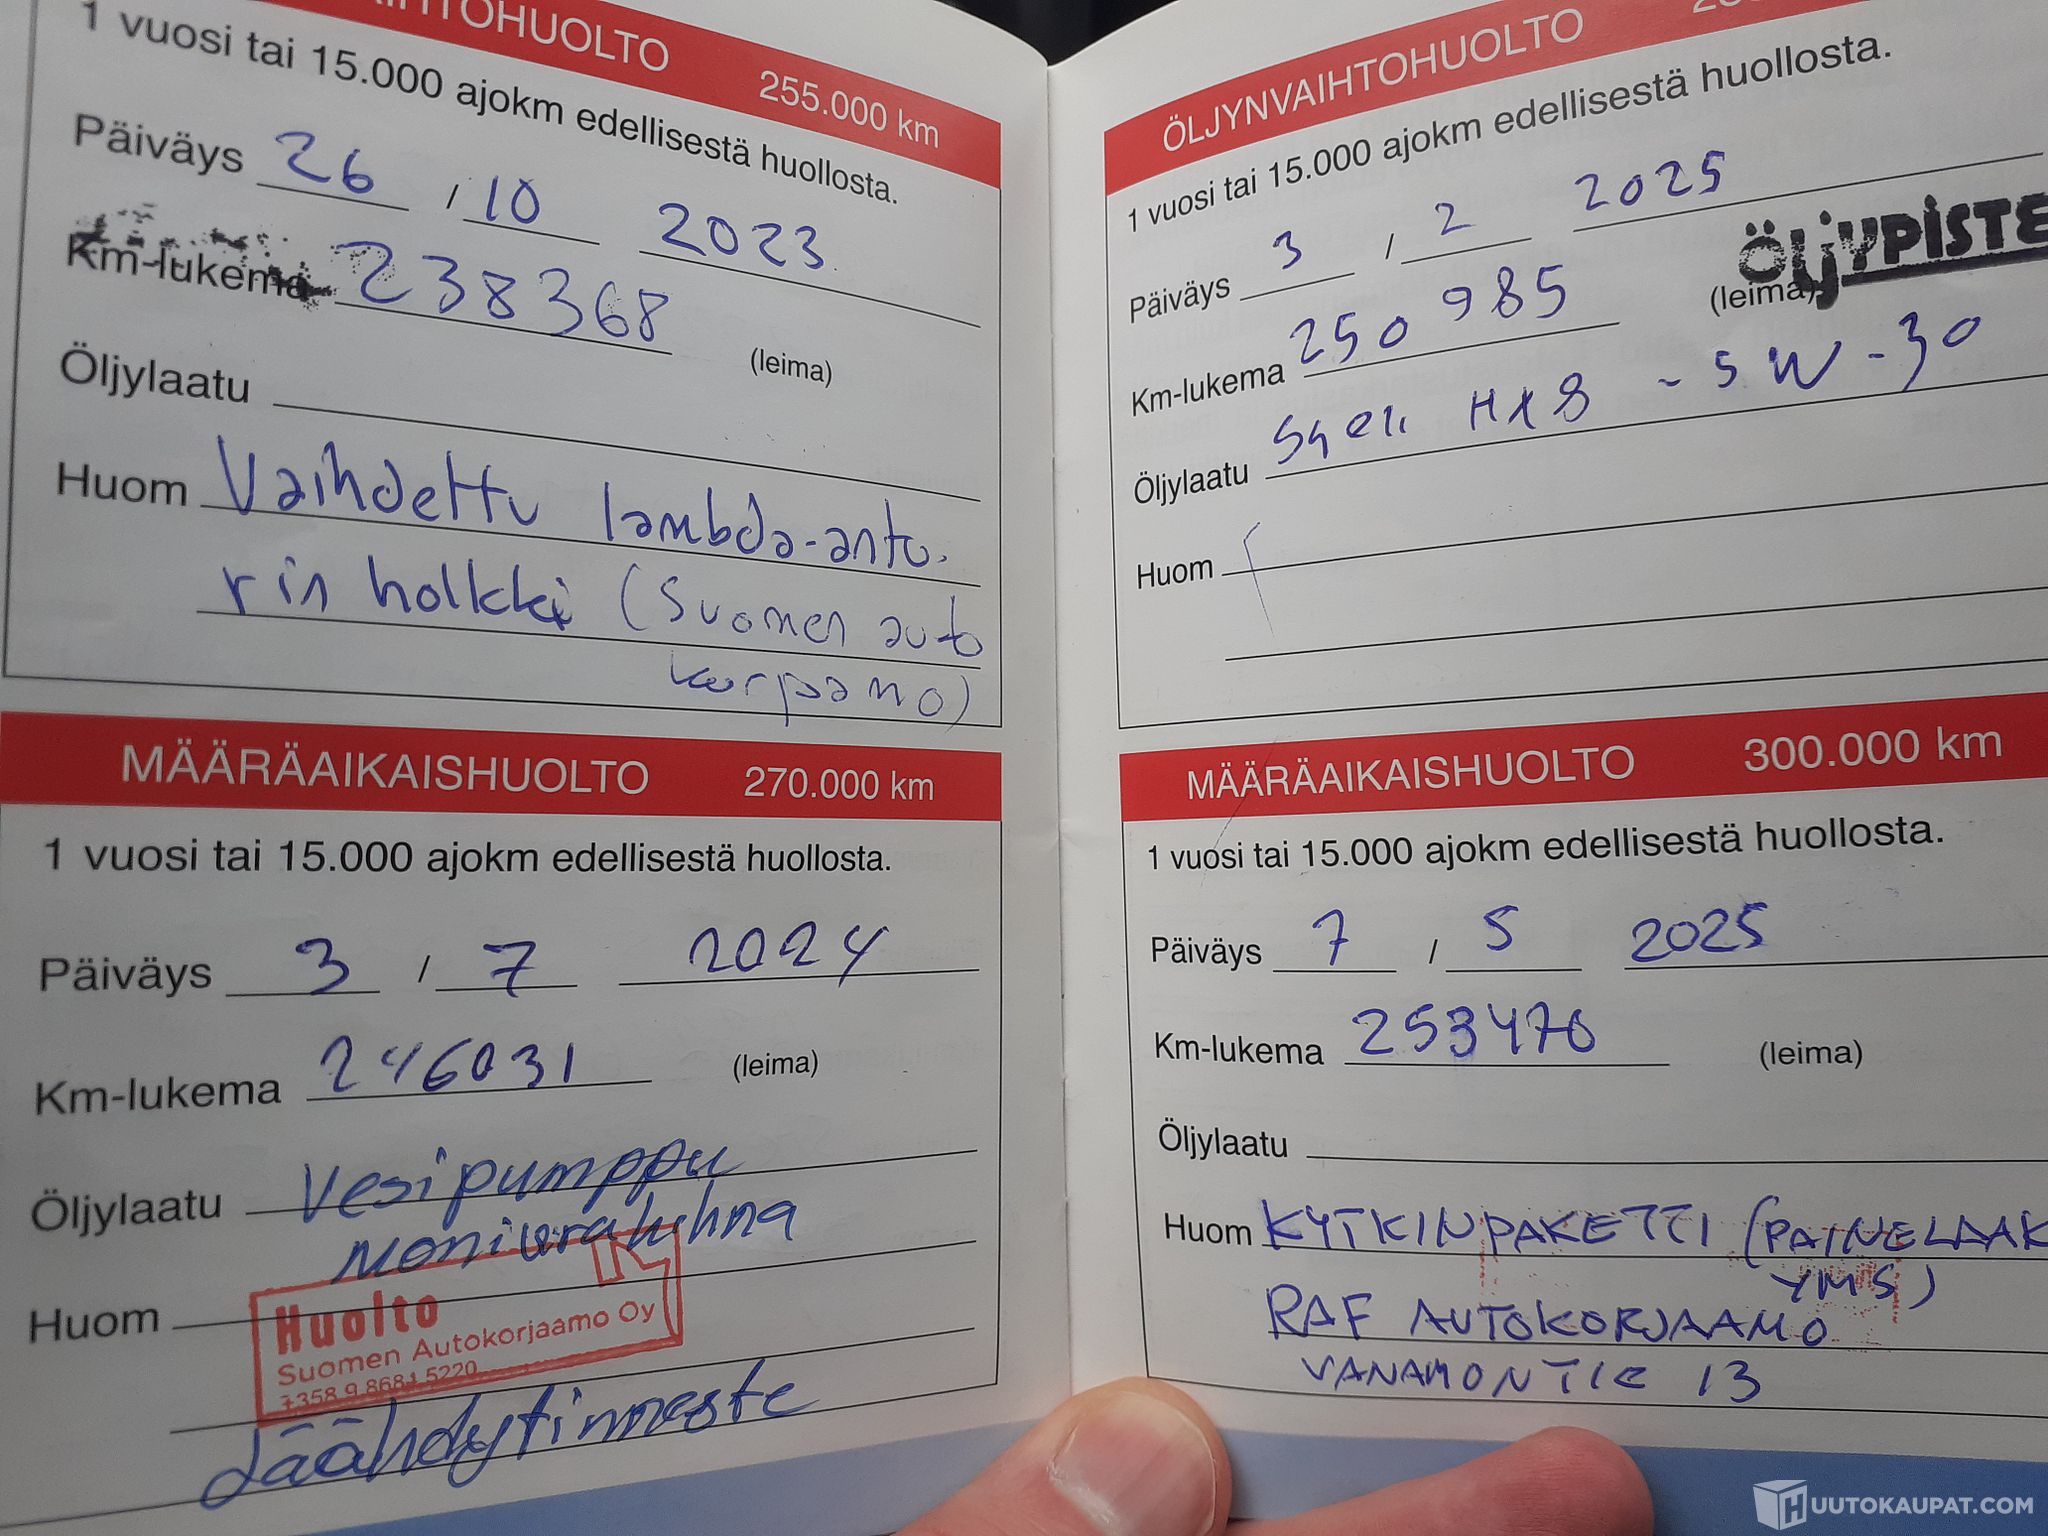 AIHTOHUOLTO 255.000 km
1 vuosi tai 15.000 ajokm edellisestä huollosta.
Päiväys 26 / 10 2023
Km-lukema 238368
(leima)
Öljylaatu
Huom Vaihdettu lambda-antu-
rin holkki (Suomen auto
korjaamo)
MÄÄRÄAIKAISHUOLTO 270.000 km
1 vuosi tai 15.000 ajokm edellisestä huollosta.
Päiväys 3 / 7 2024
Km-lukema 246031 (leima)
Öljylaatu Vesipumppu
moniurahihna
Huom
Huolto
Suomen Autokorjaamo Oy
+358 9 8684 5220
Jäähdytinneste
ÖLJYNVAIHTOHUOLTO
1 vuosi tai 15.000 ajokm edellisestä huollosta.
Päiväys 3 / 2 2025
ÖLJYPISTE
Km-lukema 250 985 (leima)
Öljylaatu HX8 - 5W-30
Huom
MÄÄRÄAIKAISHUOLTO 300.000 km
1 vuosi tai 15.000 ajokm edellisestä huollosta.
Päiväys 7 / 5 2025
Km-lukema 253470 (leima)
Öljylaatu
Huom KYTKINPAKETTI (PAINELAAK
YMS)
RAF AUTOKORJAAMO
VANAMONTIE 13
HUUTOKAUPAT.COM